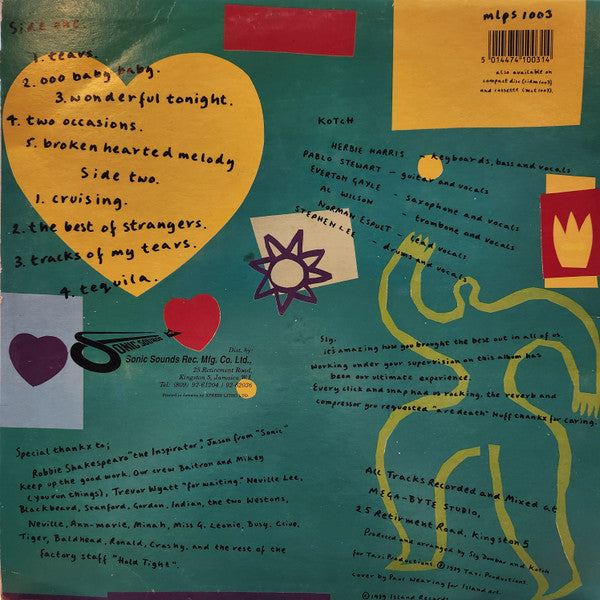 Side one.
1. tears.
2. ooo baby baby.
3. wonderful tonight.
4. two occasions.
5. broken hearted melody
Side two.
1. cruising.
2. the best of strangers.
3. tracks of my tears.
4. tequila.
mlps 1003
5 014474 100314
also available on
compact disc (cidm1003)
and cassette (mct1003).
KOTCH
HERBIE HARRIS - keyboards, bass and vocals
PABLO STEWART - guitar and vocals
EVERTON GAYLE - saxophone and vocals
AL WILSON - trombone and vocals
NORMAN ESPUET - lead vocals
STEPHEN LEE - drums and vocals
SONIC SOUNDS
Dist. by:
Sonic Sounds Rec. Mfg. Co. Ltd.,
25 Retirement Road,
Kingston 5, Jamaica W.I.
Tel: (809) 92-61204 / 92-62036
Printed in Jamaica by XPRESS LITHO LTD.
Sly:
it's amazing how you brought the best out in all of us.
Working under your supervision on this album has
been our ultimate experience.
Every click and snap had us rocking. the reverb and
compressor you requested "are death" Nuff thanks for caring.
Special thankx to;
Robbie Shakespeare "the Inspirator", Jason from "Sonic"
keep up the good work. Our crew Baitron and Mikey
(you run things), Trevor Wyatt "for waiting" Neville Lee,
Blackbeard, Stanford, Gordon, Indian, the two Westons,
Neville, Ann-marie, Minah, Miss G, Leanie, Busy, Clive,
Tiger, Baldhead, Ronald, Crashy, and the rest of the
factory staff "Hold Tight".
All Tracks Recorded and Mixed at
MEGA-BYTE STUDIO,
25 Retirment Road, Kingston 5
Produced and arranged by Sly Dunbar and Kotch
for Taxi Productions © 1989 Taxi Productions.
cover by Paul Wearing for Island art.
© 1989 Island Records